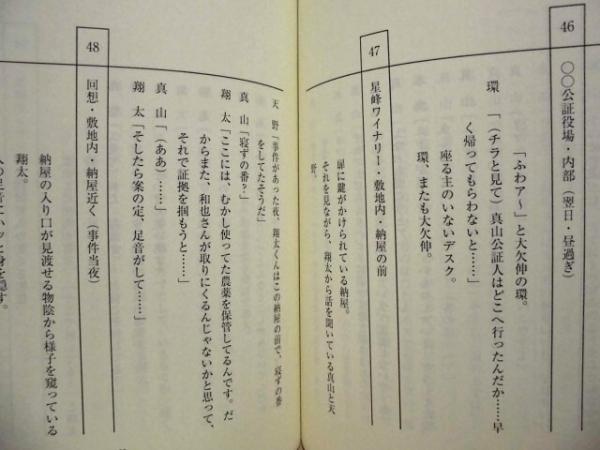 46
〇〇公証役場・内部(翌日・昼過ぎ)
「ふわア〜」と大欠伸の環。
環 「(チラと見て)真山公証人はどこへ行ったんだか……早
く帰ってもらわないと……」
座る主のいないデスク。
環、またも大欠伸。
47
星峰ワイナリー・敷地内・納屋の前
扉に鍵がかけられている納屋。
それを見ながら、翔太から話を聞いている真山と天
野。
天 野「事件があった夜、翔太くんはこの納屋の前で、寝ずの番
をしてたそうだ」
真 山「寝ずの番?」
翔 太「ここには、むかし使ってた農薬を保管してるんです。だ
からまた、和也さんが取りにくるんじゃないかと思って、
それで証拠を掴もうと……」
真 山「(ああ)……」
翔 太「そしたら案の定、足音がして……」
48
回想・敷地内・納屋近く(事件当夜)
納屋の入り口が見渡せる物陰から様子を窺っている
翔太。
の足音にハッと身を隠す。